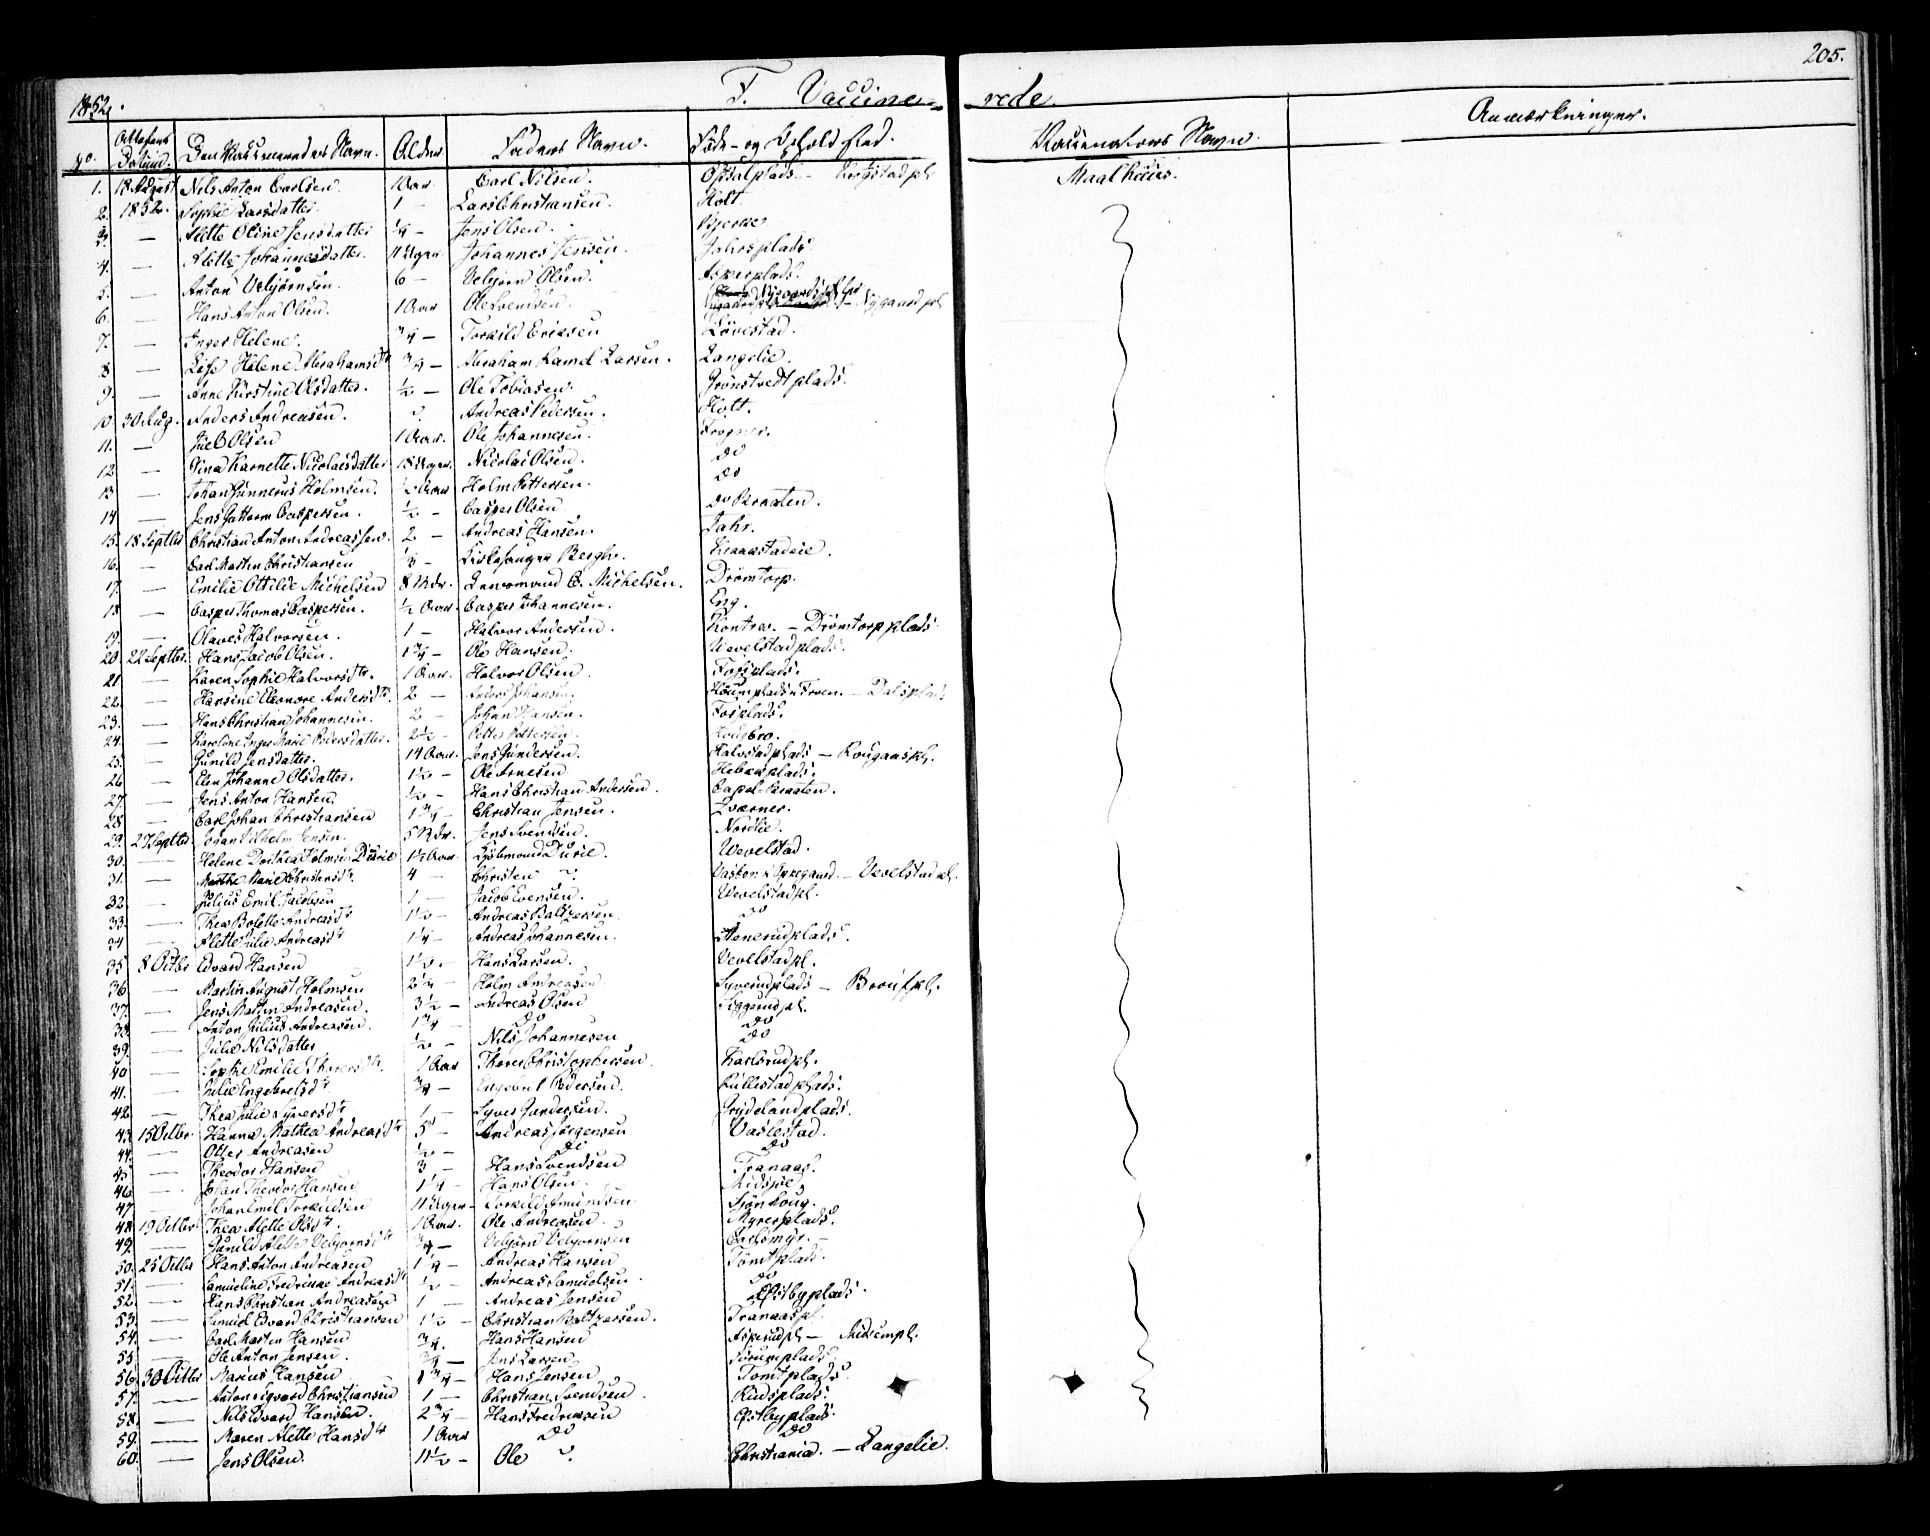 205.
1852.
F. Vaccine- rede.
No. Attestens Datum. Den Vaccineredes Navn. Alder Faders Navn. Føde- og Opholdsted. Vaccinateurs Navn. Anmærkninger.
1. 18 August Nils Anton Carlsen. 1 Aar. Carl Nilsen. Opsalplads - Maalhuus.
2. 1852. Sophie Larsdatter. 1 - Lars Christiansen. Holt
3. — Alette Oline Jensdatter ¼ - Jens Olsen. Bjerke
4. — Alette Johannesdatter. 11 Uger Johannes Jensen. Jahrsplads
5. — Anton Vebjørnsen. 6 - Vebjørn Olsen. Asperplads.
6. — Hans Anton Olsen. 1 Aar Ole Svendsen. - Nygaardpl
7. — Inger Helene. ¾ - Torkild Eriksen Løvestad.
8 — Lise Helene Abrahamsdtr ¾ - Abraham Kamel Larsen. Langelie.
9. — Anne Kirstine Olsdatter. ½ - Ole Tobiasen. Grønstvedtplads.
10 30 Aug. Anders Andreasen. " Andreas Pedersen. Holt.
11. — Juel Olsen 1 Aar. Ole Johannesen. Frogner.
12 — Gina Karnette Nicolaisdatter 18 Uger. Nicolai Olsen. do
13 — Johan Gunnerus Holmsen. ½ Aar Holm Pettersen. do
14 — Jens Gutterm Caspersen. ½ - Casper Olsen. do Braaten.
15. 18 Septbr Christian Anton Andreassen. 2 - Andreas Hansen. Jahr.
16. — Carl Martin Christiansen ⅓ - Kirkesanger Bergh. Kraakstadeie.
17. — Emilie Ottilde Michelsen 8 Mdr. Lensmand C. Michelsen. Drømtorp.
18 — Casper Thomas Caspersen. ½ Aar. Casper Johannesen. Eng.
19. — Olaves Halvorsen. 1 - Halvor Andersen. Kontra. - Drømtorpplads
20. 22 Septbr. Hans Jacob Olsen. 1¾ - Ole Hansen. Wevelstadplads.
21 — Karen Sophie Halvorsdtr. 1 Aar. Halvor Olsen. Fossplads.
22. — Hansine Eleonore Andersdtr. 2 - Anders Johansen. Haumplads i Froen. - Dalsplads
23. — Hans Christian Johannesen. 2 - Johan Hansen. Fosplads.
24. — Karoline Inger Marie Pedersdatter. 2½ - Petter Pettersen. Hougbro.
25. — Gunild Jensdatter. 14 Aar. Jens Gundersen. Halvstadplads - Kougaaspl.
26 — Elen Johanne Olsdatter. 1½ - Ole Arnesen Hebekplads.
27. — Jens Anton Hansen. ½ - Hans Christian Andersen. Capel-Braaten.
28 — Carl Johan Christiansen 1¾ - Christian Jensen. Kværner.
29. 27 Septbr. Johan Vilhelm Jensen. 5 Mdr. Jens Svendsen. Nordlie.
30. — Helene Dorthea Holmsen Durie 1½ Aar. Kjøbmand Durie. Wevelstad.
31. — Marthe Marie Christensdtr. 4 - Christen ". Vasbon i Opegaard. - Vevelstadpl.
32. — Julius Emil Jacobsen 1 - Jacob Evensen. Wevelstadpl.
33. — Thea Bolette Andreasdtr 1½ - Andreas Baltzersen. do
34 — Alette Julie Andreasdtr 1¼ - Andreas Johannesen. Stenerudplads.
35 8 Octbr Edvard Hansen 1½ - Hans Larsen. Vevelstadpl.
36. — Martin August Holmsen 2¾ - Holm Andreasen. Syverudplads -
37. — Jens Martin Andreasen. 3½ - Andreas Olsen Siggerudpl.
38. — Anton Julius Andreasen. 1¾ - do do
39. — Julie Nilsdatter ½ - Nils Johannesen do
40 — Sophie Emilie Thoresdtr. 1 Aar Thore Christophersen. Karlsrudpl.
41. — Julie Engebretsdtr ¾ - Engebret Pedersen. Rullestadplads.
42. — Thea Julie Syversdtr 1 - Syver Gundersen. Grydelandplads.
43. 15 Octbr. Hanna Mathea Andreasdtr 5 - Andreas Jørgensen Vaslestad.
44. — Otter Andreasen ½ - do do
45 — Theodor Hansen 3 - Hans Svendsen Tranaas.
46. — Johan Theodor Hansen 1¼ - Hans Olsen. Midsjøe
47 — Johan Emil Torkildsen 11 Uger - Torkild Amundsen.
48. 19 Octbr Thea Alette Olsdtr. 1 Aar. Ole Andreasen. Myrerplads.
49. — Gunild Alette Vebjørnsdtr ¾ - Vebjørn Vebjørnsen
50. 25 Octbr Hans Anton Andreasen 1¼ - Andreas Hansen Tomtplads.
51. — Samueline Fredrikke Andreasdtr ½ - Andreas Samuelsen. do
52. — Hans Christian Andreasen 1 - Andreas Jensen Østbyplads.
53. — Samuel Edvard Christiansen 1½ - Christian Baltzersen. Tranaaspl.
54. — Carl Martin Hansen ¾. Hans Hansen Asperudpl -
55 — Ole Anton Jensen. ¾ - Jens Larsen
56. 30 Octbr Marius Hansen 1¾ - Hans Jensen Tomtplads.
57. — Anton Sigvard Christiansen 1 - Christian Svendsen. Rudsplads.
58. — Nils Edvard Hansen. 2¾ - Hans Fredriksen Østbyplads.
59. — Maren Alette Hansdtr 1 Aar do do
60. — Jens Olsen. 11½ - Ole ". Christiania. - Langelie.